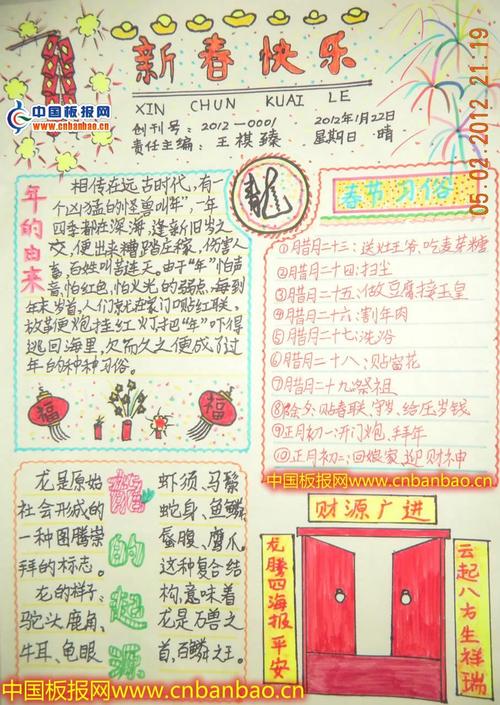 新春快乐
XIN CHUN KUAI LE
中国板报网
www.cnbanbao.cn
创刊号：2012—0001
2012年1月22日
责任主编：王棋臻
星期日·晴
05.02.2012 21:19
年的由来
相传在远古时代，有一
个凶猛的怪兽叫“年”，一年
四季都在深海，逢新旧岁之
交，便出来糟踏庄稼，伤害人
畜，百姓叫苦连天。由于“年”怕声
音，怕红色，怕火光的弱点，每到
年末岁首，人们就在家门口贴红联，
放革便炮，挂红灯，把“年”吓得
逃回海里，久而久之便成了过
年的种种习俗。
福
福
龍
春节习俗
①月腊月二十三：送灶王爷、吃麦芽糖
②月腊月二十四：扫尘
③月腊月二十五：做豆腐接玉皇
④月腊月二十六：割年肉
⑤月腊月二十七：洗浴
⑥月腊月二十八：贴窗花
⑦月腊月二十九：祭祖
⑧除夕：贴春联、守岁、给压岁钱
⑨正月初一：开门炮、拜年
⑩正月初二：回娘家、迎财神
中国板报网www.cnbanbao.cn
龙的起源
龙是原始
社会形成的
一种图腾崇
拜的标志。
龙的样子：
驼头、鹿角、
牛耳、龟眼
虾须、马鬃
蛇身、鱼鳞
蜃腹、鹰爪。
这种复合结
构，意味着
龙是万兽之
首，百鳞之王。
财源广进
龙腾四海报平安
云起八方生祥瑞
中国板报网www.cnbanbao.cn